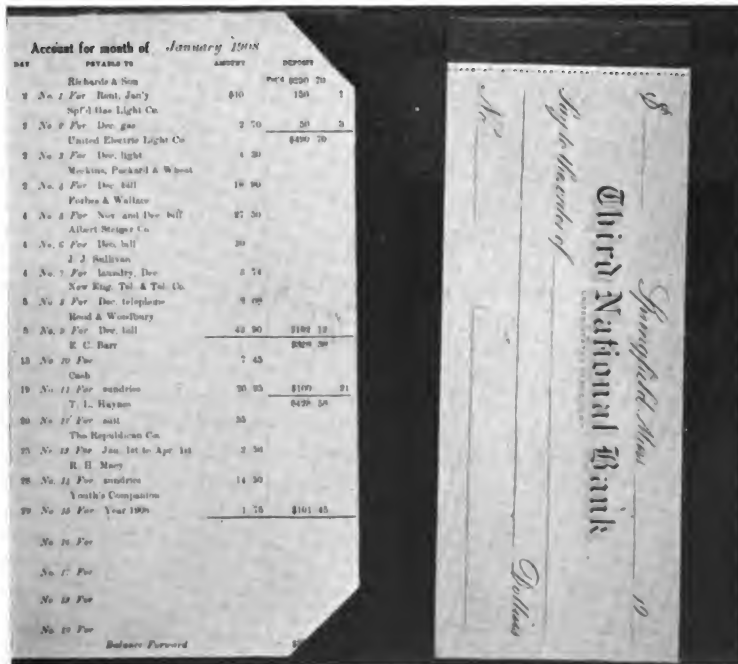 Account for month of January 1908
DAY PAYABLE TO AMOUNT DEPOSIT
Richards & Son For'd $290 70
2 No. 1 For Rent, Jan'y $40 150 2
Spf'd Gas Light Co.
2 No 2 For Dec. gas 2 70 50 3
United Electric Light Co. $490 70
2 No 3 For Dec. light 4 20
Meekins, Packard & Wheat
2 No. 4 For Dec. bill 18 90
Forbes & Wallace
4 No 5 For Nov. and Dec. bill 27 50
Albert Steiger Co.
4 No. 6 For Dec. bill 20
J. J. Sullivan
4 No. 7 For laundry, Dec
New Eng. Tel. & Tel. Co.
5 No. 8 For Dec. telephone
Reed & Woodbury
8 No. 9 For Dec. bill 42 90 $162 12
R. C. Barr $328 58
15 No 10 For 7 45
Cash
19 No 11 For sundries $100 21
T. L. Haynes $428 58
20 No 12 For suit 35
The Republican Co.
25 No 13 For Jan. 1st to Apr. 1st 2 50
R. H. Macy
28 No. 14 For sundries 14 50
Youth's Companion
29 No 15 For Year 1908 1 75 $101 45
No 16 For
No 17 For
No 18 For
No 19 For
Balance Forward
$
Springfield, Mass 19
Third National Bank
Pay to the order of
Dollars
No.